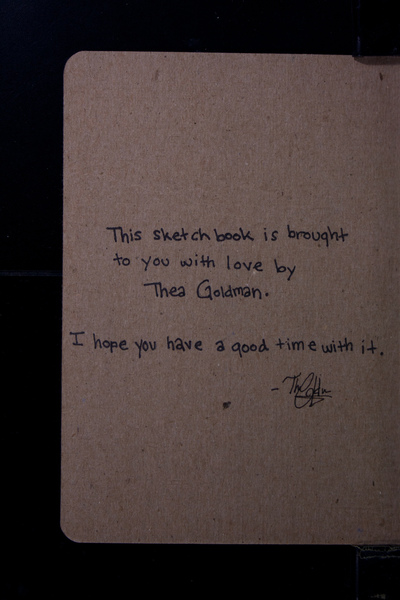 This sketchbook is brought
to you with love by
Thea Goldman.
I hope you have a good time with it.